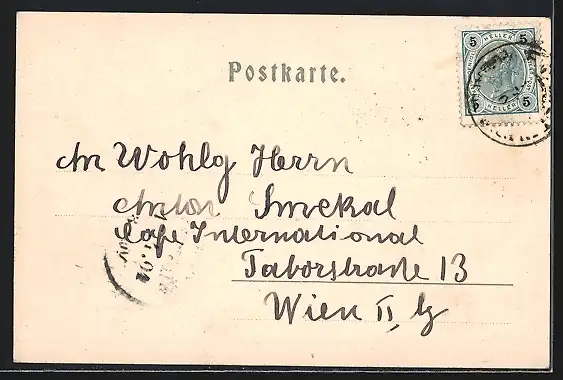 Postkarte.
5 HELLER 5
5 HELLER 5
An Wohlg Herrn
Anton Smekal
Cafe International
Taborstraße 13
Wien II,